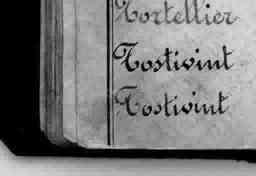 Tortellier
Tostivint
Tostivint